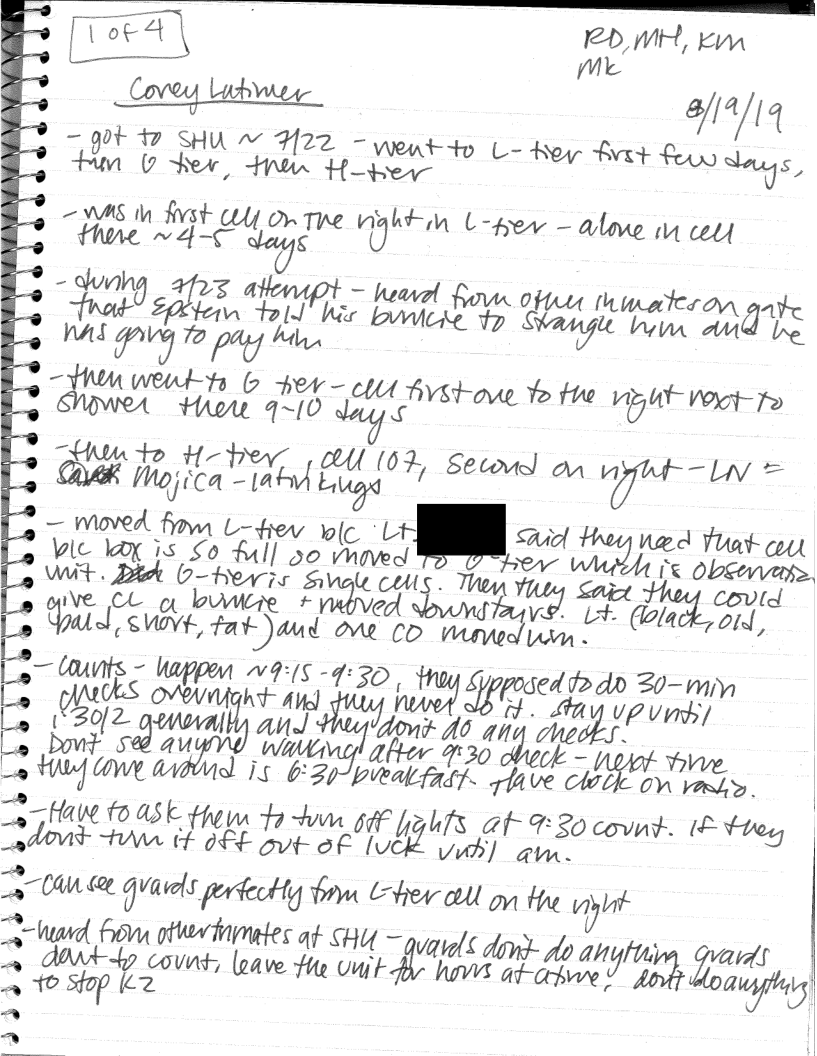 1 of 4
RD, MH, KM
MK
Corey Latimer
8/19/19
- got to SHU ~ 7/22 - went to L-tier first few days,
then G tier, then H-tier
- was in first cell on the right in L-tier - alone in cell
there ~4-5 days
- during 7/23 attempt - heard from other inmates on gate
that Epstein told his bunkie to strangle him and he
was going to pay him
- then went to G tier - cell first one to the right next to
shower there 9-10 days
- then to H-tier, cell 107, second on right - LN =
Mojica - latin kings
- moved from L-tier b/c Lt. said they need that cell
b/c box is so full so moved to G-tier which is observation
unit. G-tier is single cells. Then they said they could
give CL a bunkie + moved downstairs. Lt. (black, old,
bald, short, fat) and one CO moved him.
- Counts - happen ~9:15-9:30, they supposed to do 30-min
checks overnight and they never do it. stay up until
1:30/2 generally and they don't do any checks.
Don't see anyone walking after 9:30 check - next time
they come around is 6:30 breakfast. Have clock on radio.
- Have to ask them to turn off lights at 9:30 count. If they
don't turn it off out of luck until am.
- can see guards perfectly from L-tier cell on the right
- heard from other inmates at SHU - guards don't do anything guards
don't do count, leave the unit for hours at a time, don't do anything
to stop K2